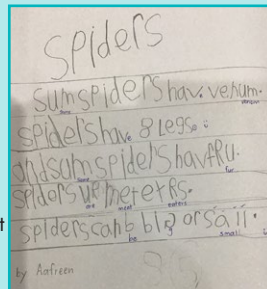 spiders
sumspiders hav. venum.
some
spiders hav 8 Legs.
e
andsum spiders hav fRu.
some fur
spiders ur meteters.
are meat eaters
spiders can b big or sall.
be small
by Aafreen
t